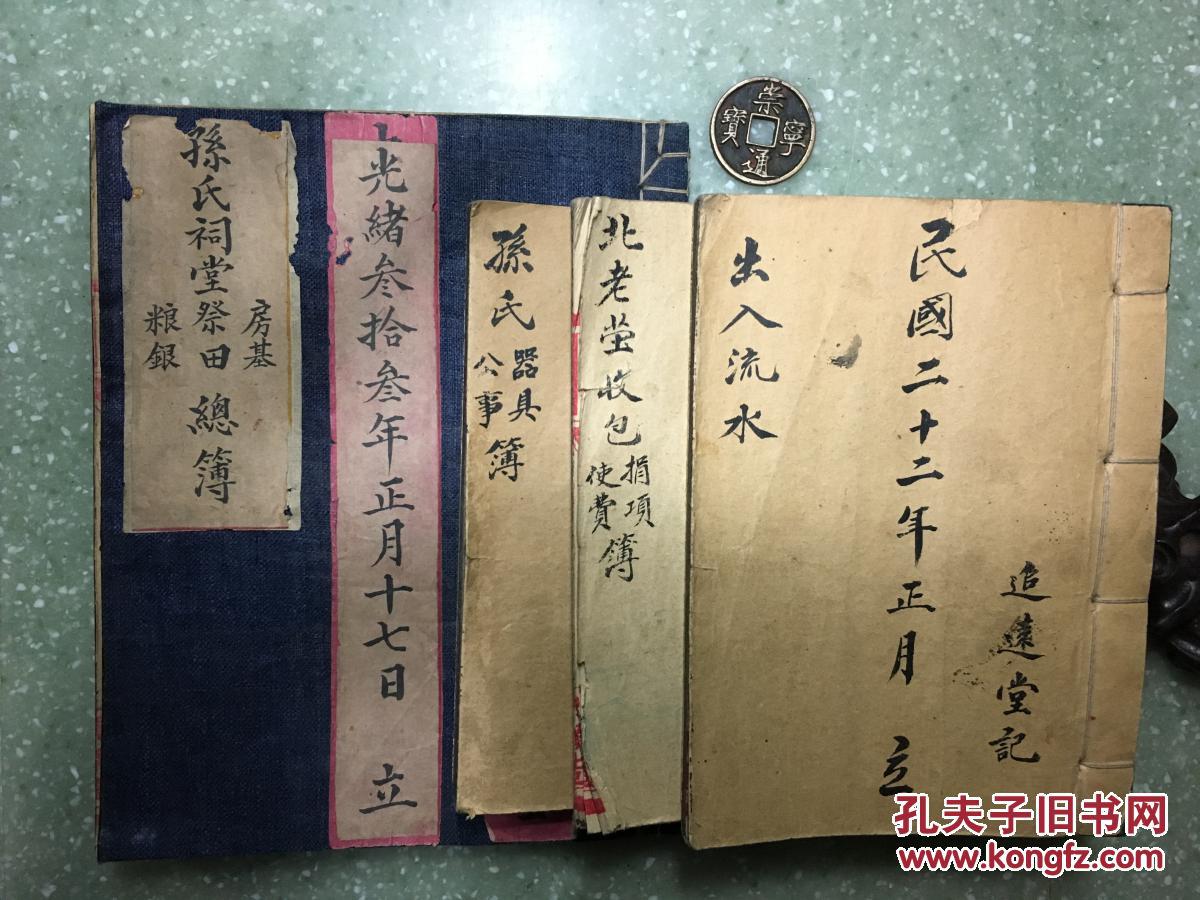 孫氏祠堂祭田總簿
房基
粮銀
光緒叁拾叁年正月十七日 立
孫氏
器具
公事
簿
北老塋收包
捐項
使費
簿
民國二十二年正月 立
出入流水
追遠堂記
崇寧通寶
孔夫子旧书网
www.kongfz.com